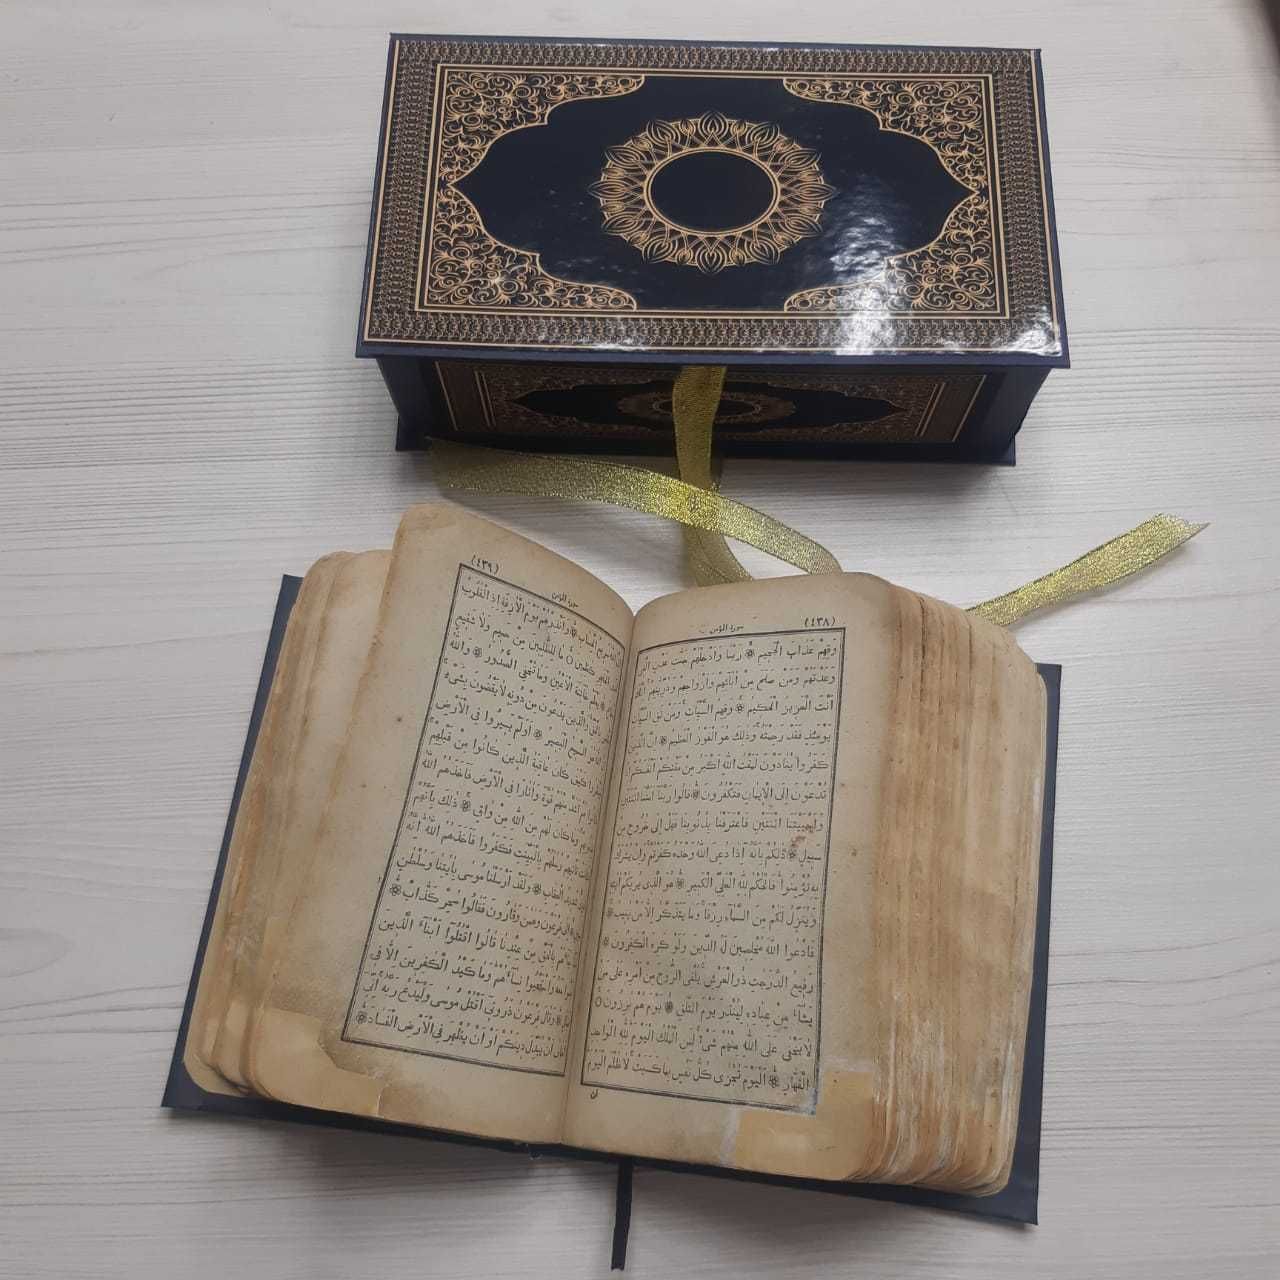 (٤٣٨)
سورة المؤمن
وَقِهِمْ عَذَابَ الْجَحِيمِ ۞ رَبَّنَا وَأَدْخِلْهُمْ جَنّٰتِ عَدْنٍ
وَعَدْتَهُمْ وَمَنْ صَلَحَ مِنْ اٰبَآئِهِمْ وَاَزْوَاجِهِمْ وَذُرِّيّٰتِهِمْ
اَنْتَ الْعَزِيزُ الْحَكِيمُ ۞ وَقِهِمُ السَّيِّاٰتِ وَمَنْ تَقِ السَّيِّاٰتِ
يَوْمَئِذٍ فَقَدْ رَحِمْتَهُ وَذٰلِكَ هُوَ الْفَوْزُ الْعَظِيمُ ۞ اِنَّ الَّذِينَ
كَفَرُوا يُنَادَوْنَ لَمَقْتُ اللّٰهِ اَكْبَرُ مِنْ مَقْتِكُمْ اَنْفُسَكُمْ اِذْ
تُدْعَوْنَ اِلَى الْاِيمَانِ فَتَكْفُرُونَ ۞ قَالُوا رَبَّنَا اَمَتَّنَا اثْنَتَيْنِ
وَاَحْيَيْتَنَا اثْنَتَيْنِ فَاعْتَرَفْنَا بِذُنُوبِنَا فَهَلْ اِلٰى خُرُوجٍ مِنْ
سَبِيلٍ ۞ ذٰلِكُمْ بِاَنَّهُ اِذَا دُعِيَ اللّٰهُ وَحْدَهُ كَفَرْتُمْ وَاِنْ يُشْرَكْ
بِهِ تُؤْمِنُوا فَالْحُكْمُ لِلّٰهِ الْعَلِيِّ الْكَبِيرِ ۞ هُوَ الَّذِي يُرِيكُمْ اٰيَاتِهِ
وَيُنَزِّلُ لَكُمْ مِنَ السَّمَآءِ رِزْقًا وَمَا يَتَذَكَّرُ اِلَّا مَنْ يُنِيبُ ۞
فَادْعُوا اللّٰهَ مُخْلِصِينَ لَهُ الدِّينَ وَلَوْ كَرِهَ الْكٰفِرُونَ ۞
رَفِيعُ الدَّرَجٰتِ ذُو الْعَرْشِ يُلْقِي الرُّوحَ مِنْ اَمْرِهِ عَلٰى مَنْ
يَشَآءُ مِنْ عِبَادِهِ لِيُنْذِرَ يَوْمَ التَّلَاقِ ۞ يَوْمَ هُمْ بَارِزُونَ
لَا يَخْفٰى عَلَى اللّٰهِ مِنْهُمْ شَيْءٌ لِمَنِ الْمُلْكُ الْيَوْمَ لِلّٰهِ الْوَاحِدِ
الْقَهَّارِ ۞ اَلْيَوْمَ تُجْزٰى كُلُّ نَفْسٍ بِمَا كَسَبَتْ لَا ظُلْمَ الْيَوْمَ
ان
(٤٣٩)
سورة المؤمن
اِنَّ اللّٰهَ سَرِيعُ الْحِسَابِ ۞ وَاَنْذِرْهُمْ يَوْمَ الْاٰزِفَةِ اِذِ الْقُلُوبُ
الْحَنَاجِرِ كٰظِمِينَ مَا لِلظّٰلِمِينَ مِنْ حَمِيمٍ وَلَا شَفِيعٍ
يَعْلَمُ خَآئِنَةَ الْاَعْيُنِ وَمَا تُخْفِي الصُّدُورُ ۞ وَاللّٰهُ
بِالْحَقِّ وَالَّذِينَ يَدْعُونَ مِنْ دُونِهِ لَا يَقْضُونَ بِشَيْءٍ
هُوَ السَّمِيعُ الْبَصِيرُ ۞ اَوَلَمْ يَسِيرُوا فِي الْاَرْضِ
كَيْفَ كَانَ عَاقِبَةُ الَّذِينَ كَانُوا مِنْ قَبْلِهِمْ
اَشَدَّ مِنْهُمْ قُوَّةً وَاٰثَارًا فِي الْاَرْضِ فَاَخَذَهُمُ اللّٰهُ
وَمَا كَانَ لَهُمْ مِنَ اللّٰهِ مِنْ وَاقٍ ۞ ذٰلِكَ بِاَنَّهُمْ
تَأْتِيهِمْ رُسُلُهُمْ بِالْبَيِّنٰتِ فَكَفَرُوا فَاَخَذَهُمُ اللّٰهُ اِنَّهُ
شَدِيدُ الْعِقَابِ ۞ وَلَقَدْ اَرْسَلْنَا مُوسٰى بِاٰيٰتِنَا وَسُلْطٰنٍ
اِلٰى فِرْعَوْنَ وَهَامٰنَ وَقَارُونَ فَقَالُوا سٰحِرٌ كَذَّابٌ ۞
جَآءَهُمْ بِالْحَقِّ مِنْ عِنْدِنَا قَالُوا اقْتُلُوا اَبْنَآءَ الَّذِينَ
مَعَهُ وَاسْتَحْيُوا نِسَآءَهُمْ وَمَا كَيْدُ الْكٰفِرِينَ اِلَّا فِي
۞ وَقَالَ فِرْعَوْنُ ذَرُونِي اَقْتُلْ مُوسٰى وَلْيَدْعُ رَبَّهُ اِنِّي
اَخَافُ اَنْ يُبَدِّلَ دِينَكُمْ اَوْ اَنْ يُظْهِرَ فِي الْاَرْضِ الْفَسَادَ ۞